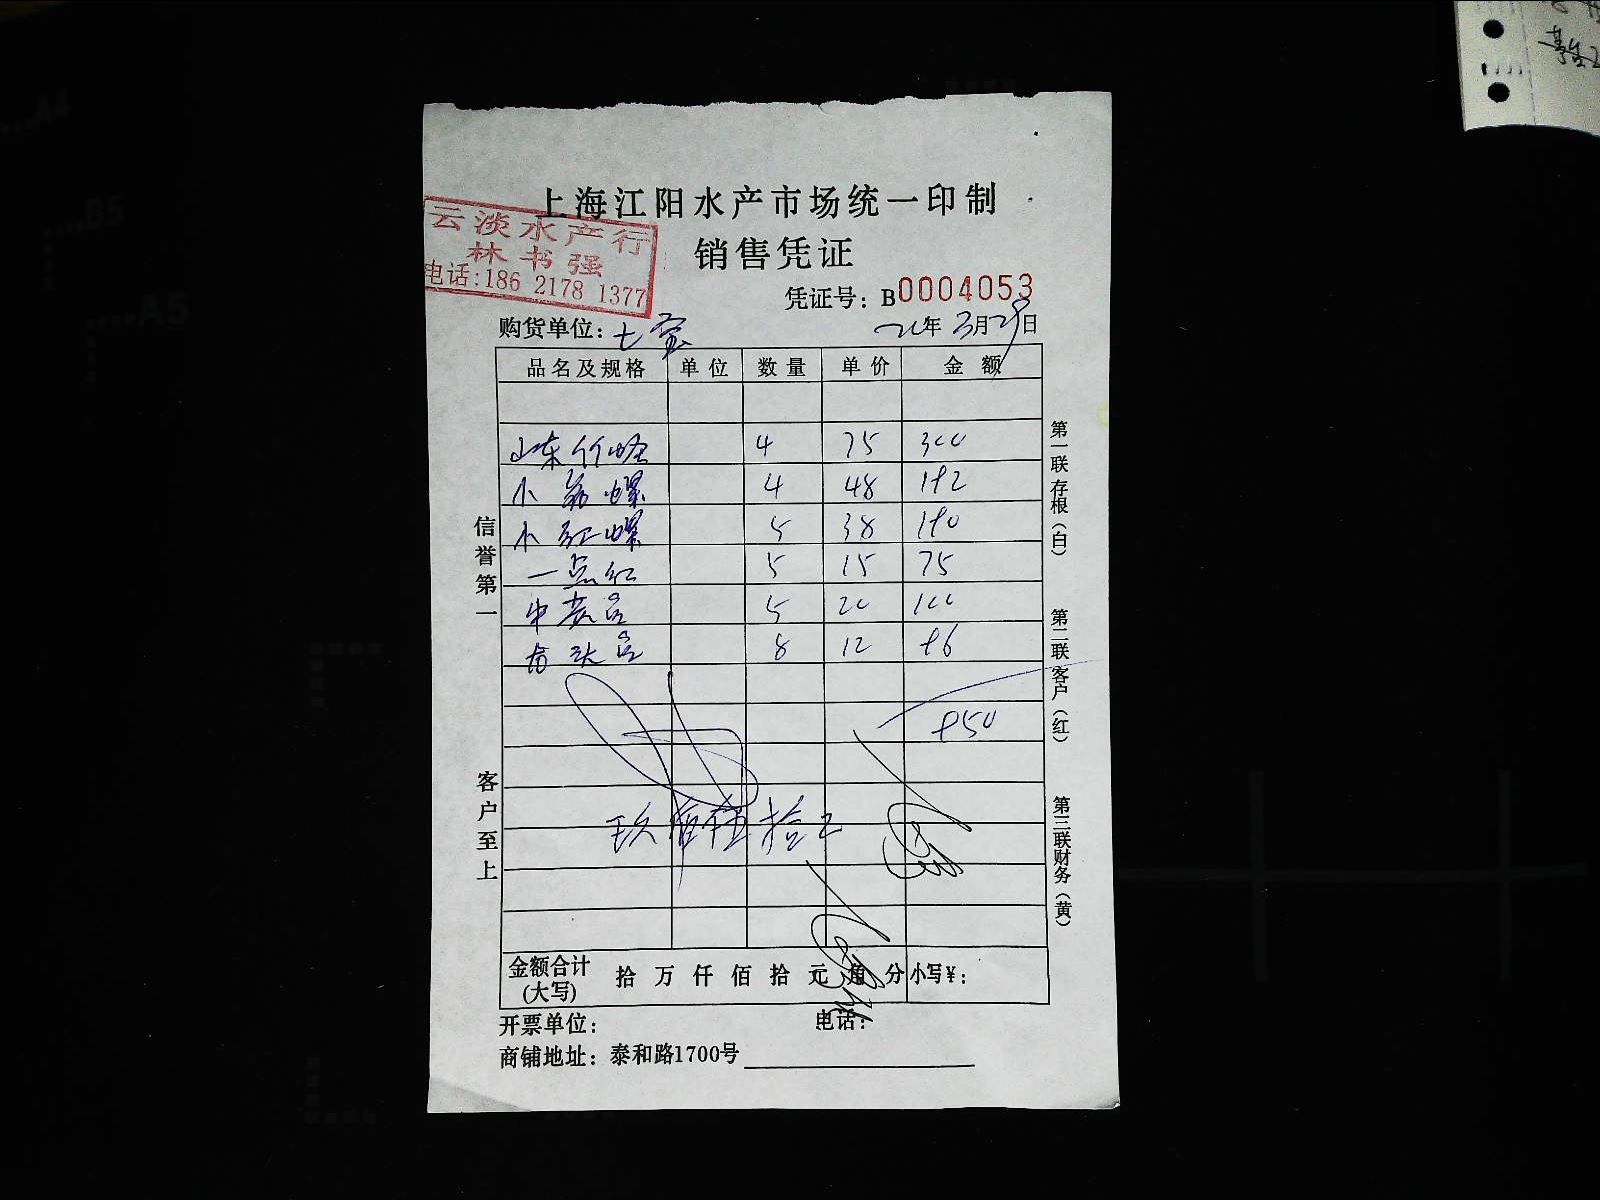 上海江阳水产市场统一印制
云淡水产行
林书强
电话:186 2178 1377
销售凭证
凭证号: B0004053
购货单位: 七宝
年 3月29日
品名及规格 单位 数量 单价 金额
山东竹蛏 4 75 300
小 螺 4 48 192
小红螺 5 38 190
一点红 5 15 75
中 5 20 100
8 12 96
950
玖佰伍拾元
金额合计(大写) 拾 万 仟 佰 拾 元 角 分 小写¥:
开票单位: 电话:
商铺地址: 泰和路1700号
信誉第一
客户至上
第一联 存根(白)
第二联 客户(红)
第三联 财务(黄)